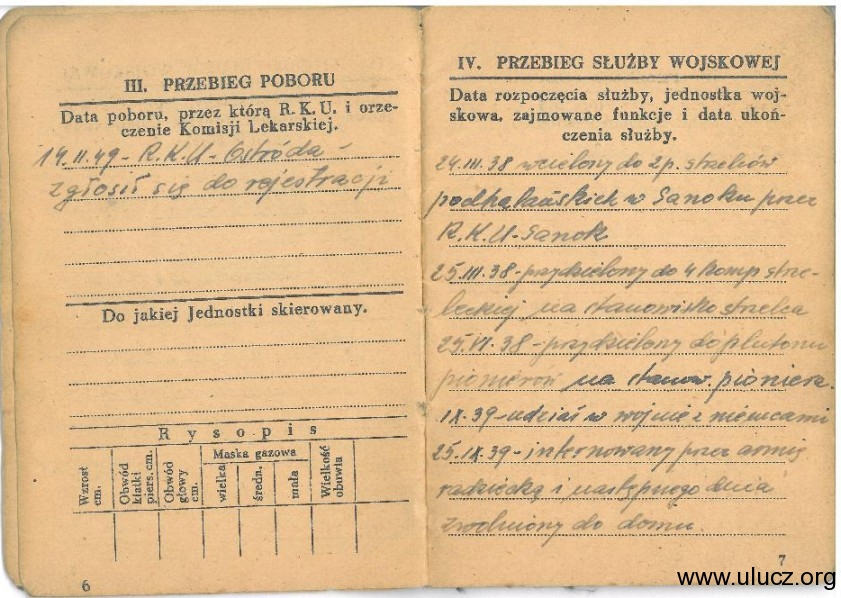 III. PRZEBIEG POBORU
Data poboru, przez którą R. K. U. i orze-
czenie Komisji Lekarskiej.
14.II.49 - R.K.U - Ostróda -
zgłosił się do rejestracji
Do jakiej Jednostki skierowany.
Rysopis
Wzrost cm.
Obwód klatki piers. cm.
Obwód głowy cm.
Maska gazowa
wielka
średn.
mała
Wielkość obuwia
6
IV. PRZEBIEG SŁUŻBY WOJSKOWEJ
Data rozpoczęcia służby, jednostka woj-
skowa, zajmowane funkcje i data ukoń-
czenia służby.
24.III.38 wcielony do 2p. strzelców
podhalańskich w Sanoku przez
R.K.U-Sanok
25.III.38-przydzielony do 4 komp strze-
leckiej na stanowisko strzelca
25.VI.38-przydzielony do plutonu
pionierów na stanow. pioniera.
IX.39-udział w wojnie z niemcami
25.IX.39-internowany przez armię
radziecką i następnego dnia
zwolniony do domu.
7
www.ulucz.org